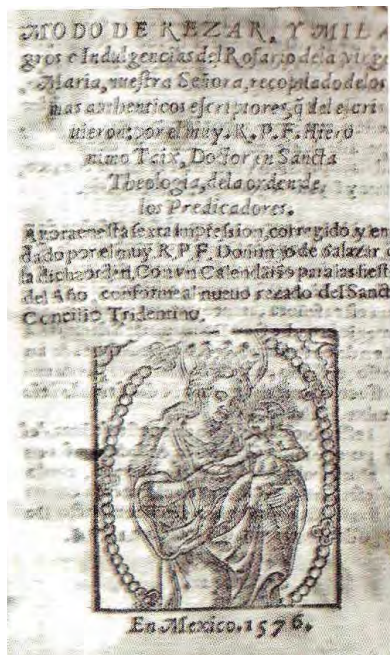 MODO DE REZAR, Y MILA
gros e Indulgencias del Rosario dela Virgē
Maria, nuestra Señora, recopilado delos
mas authenticos escriptores, q̃ del escri
uieron: por el muy. R. P. F. Hiero
nimo Taix, Doctor en Sancta
Theologia, dela orden de,
los Predicadores.
Agora en esta sexta impression, corregido y en
dado por el muy. R. P. F. Domingo de Salazar
la dicha orden, Con vn Calendario para las fiest
del Año, conforme al nueuo rezado del Sanct
Concilio Tridentino.
En Mexico. 1576.